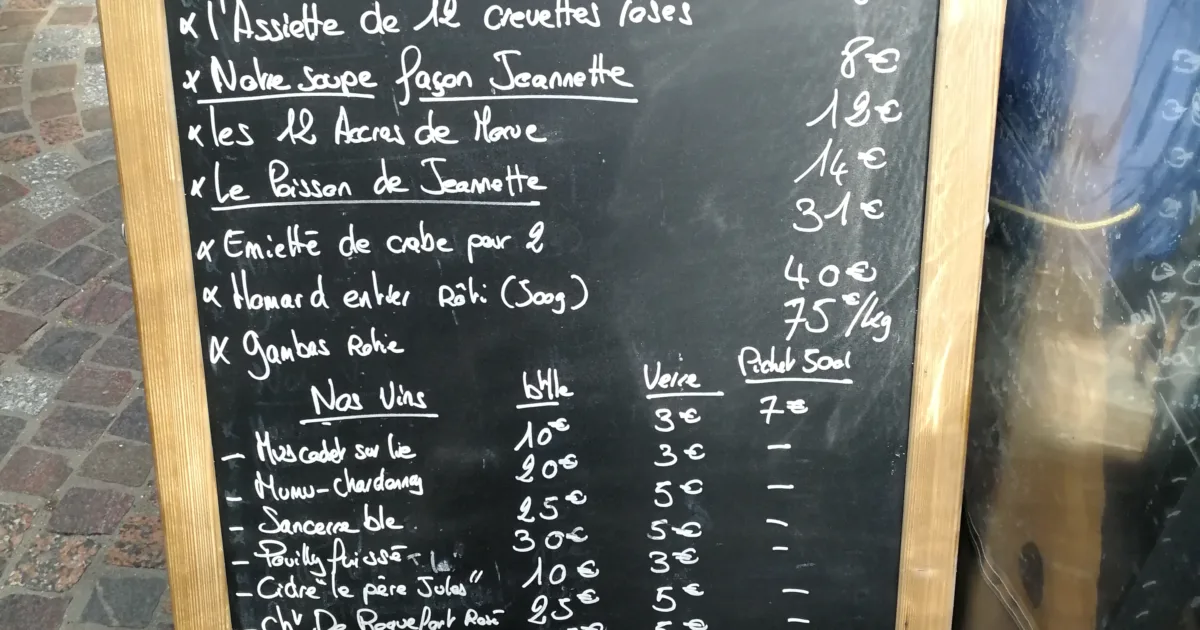 x l'Assiette de 12 crevettes roses
x Notre soupe façon Jeannette 8€
x les 12 Accras de Morue 12€
x Le Poisson de Jeannette 14€
x Emietté de crabe pour 2 31€
x Homard entier Rôti (500g) 40€
x Gambas Rotie 75€/kg
Nos Vins btlle Verre Pichet 50cl
- Muscadet sur lie 10€ 3€ 7€
- Chardonnay 20€ 3€ -
- Sancerre ble 25€ 5€ -
- Pouilly fuissé 30€ 5€ -
- Cidre "le père Jules" 10€ 3€ -
- Chu De Roquefort Rosé 25€ 5€ -